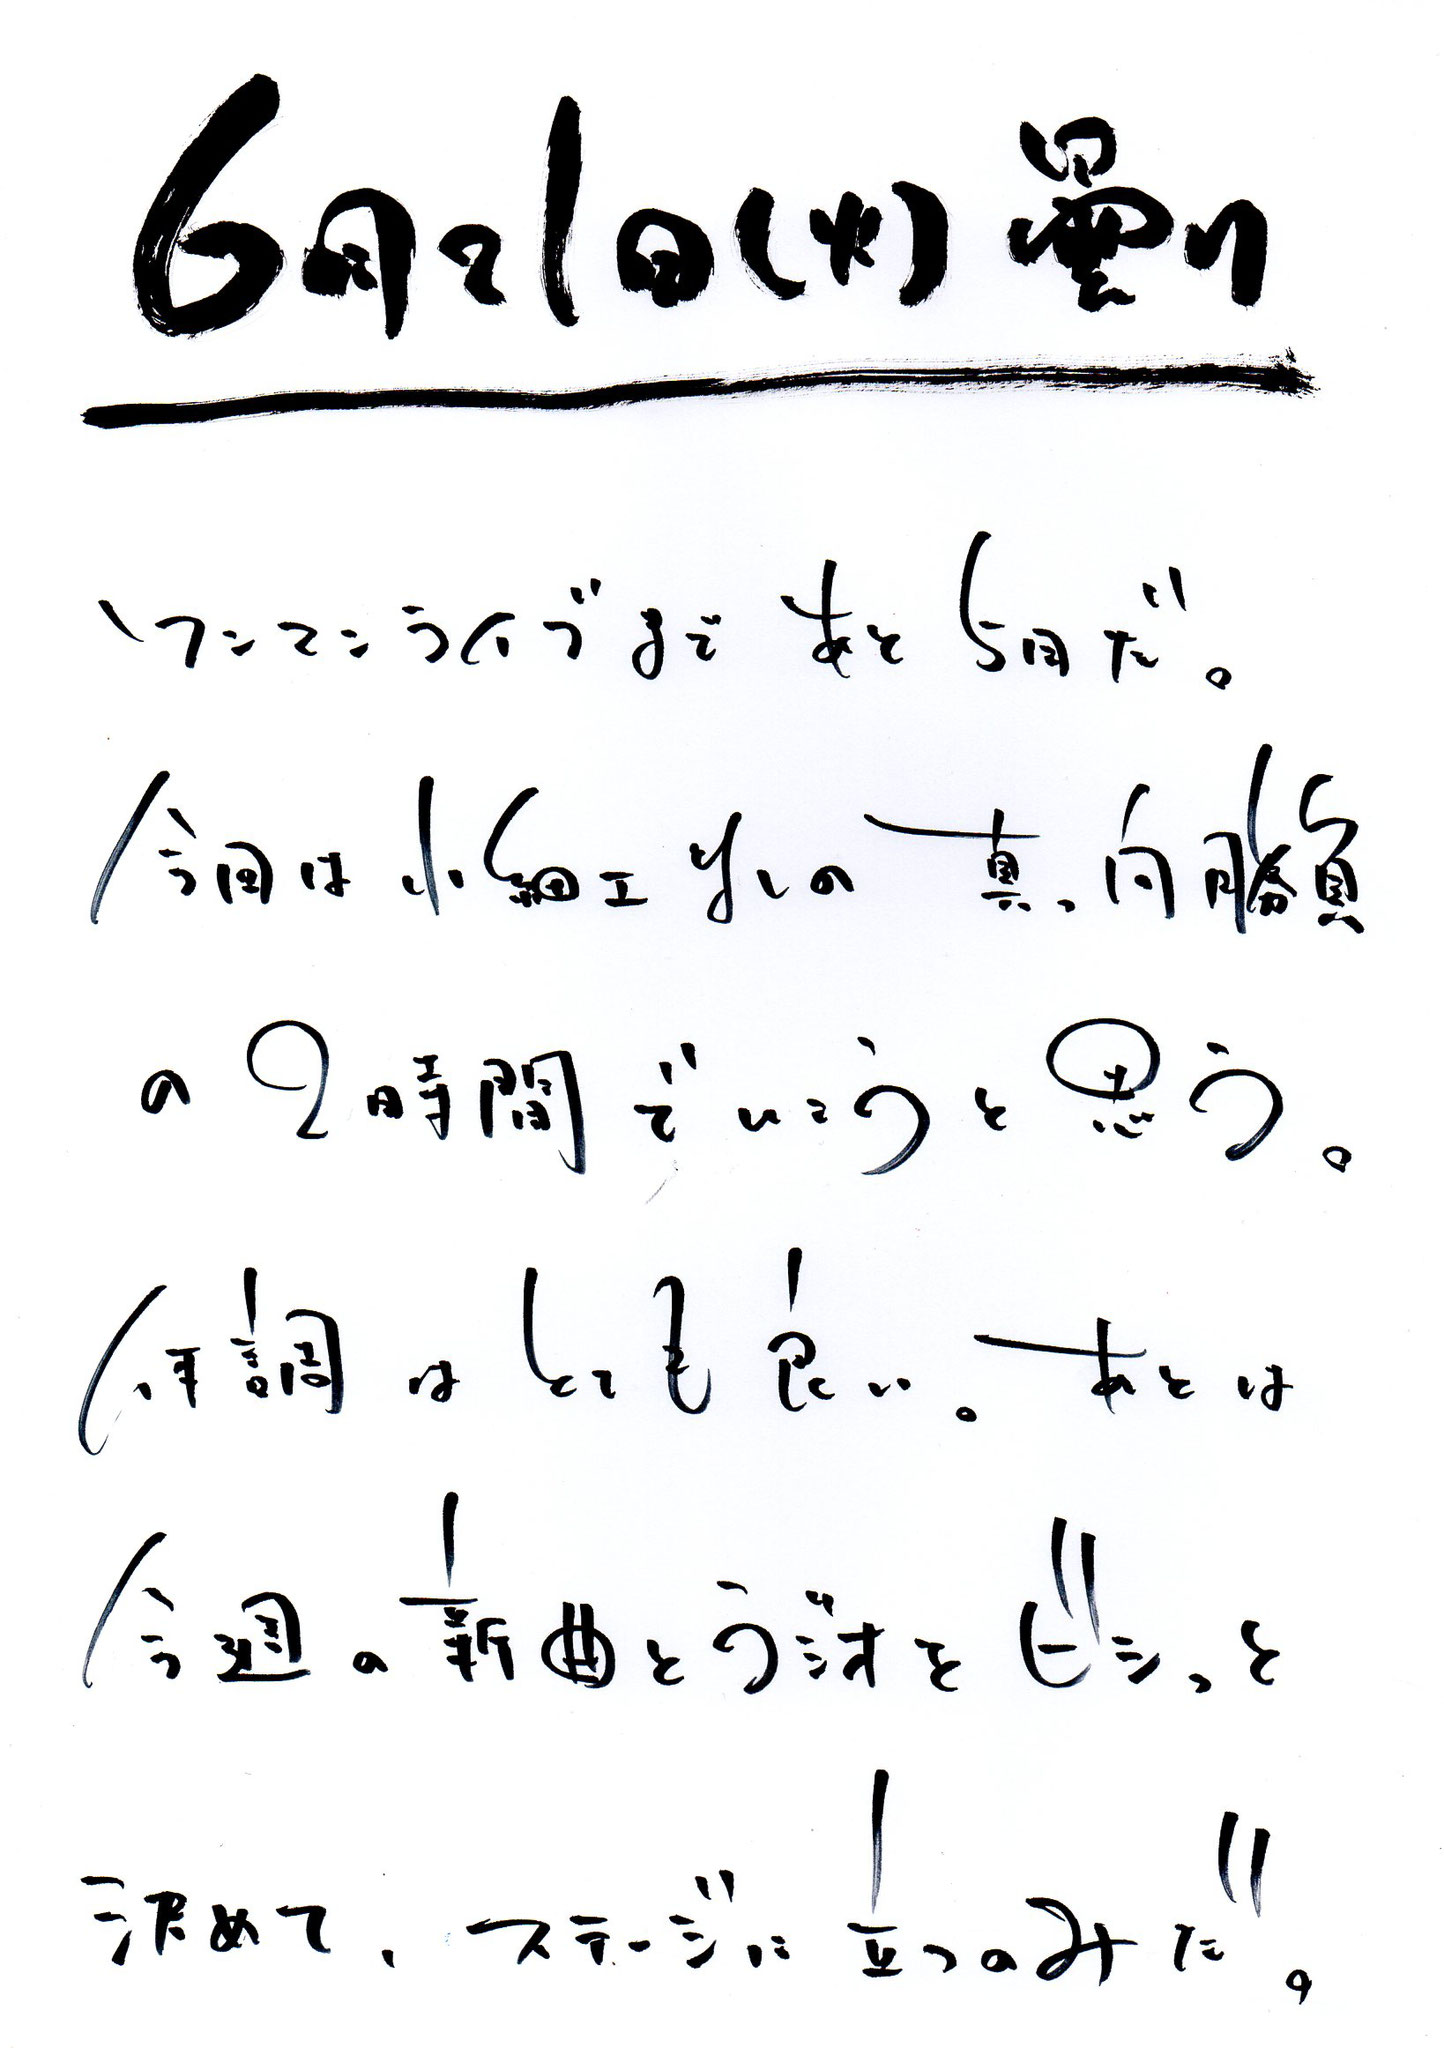 6月21日(火)曇り
ワンマンライブまであと5日だ。
今回は小細工なしの真っ向勝負
の2時間でいこうと思う。
体調はとても良い。あとは
今週の新曲とラジオをビシっと
決めて、ステージに立つのみだ。